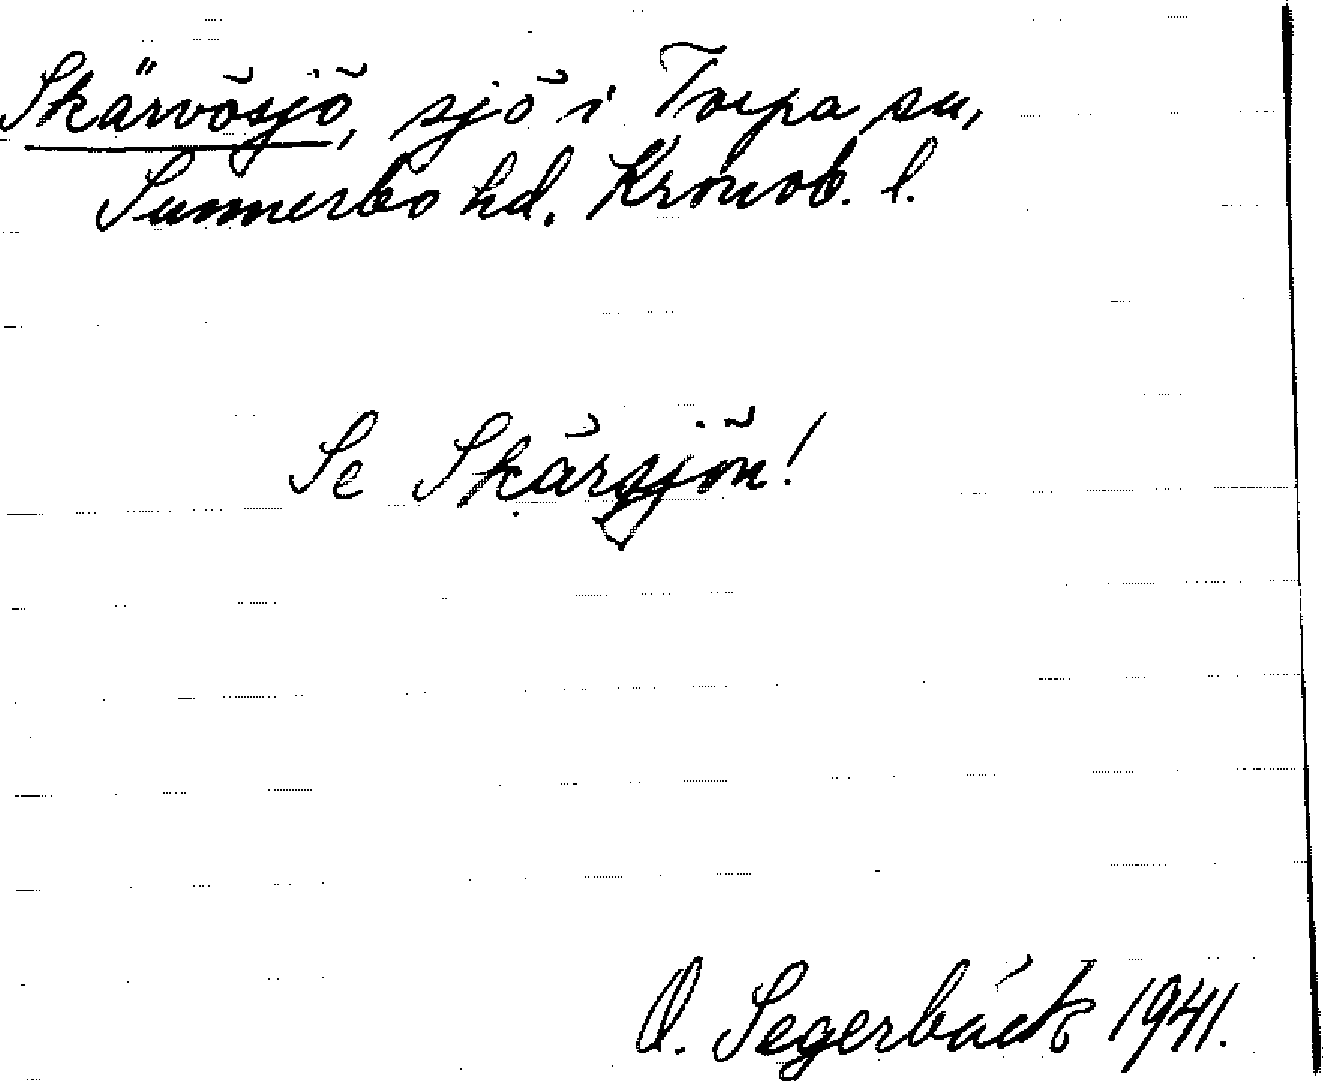 Skärvösjö, sjö i Torpa sn,
Sunnerbo hd. Kronob. l.
Se Skärsjön!
O. Segerbäck 1941.